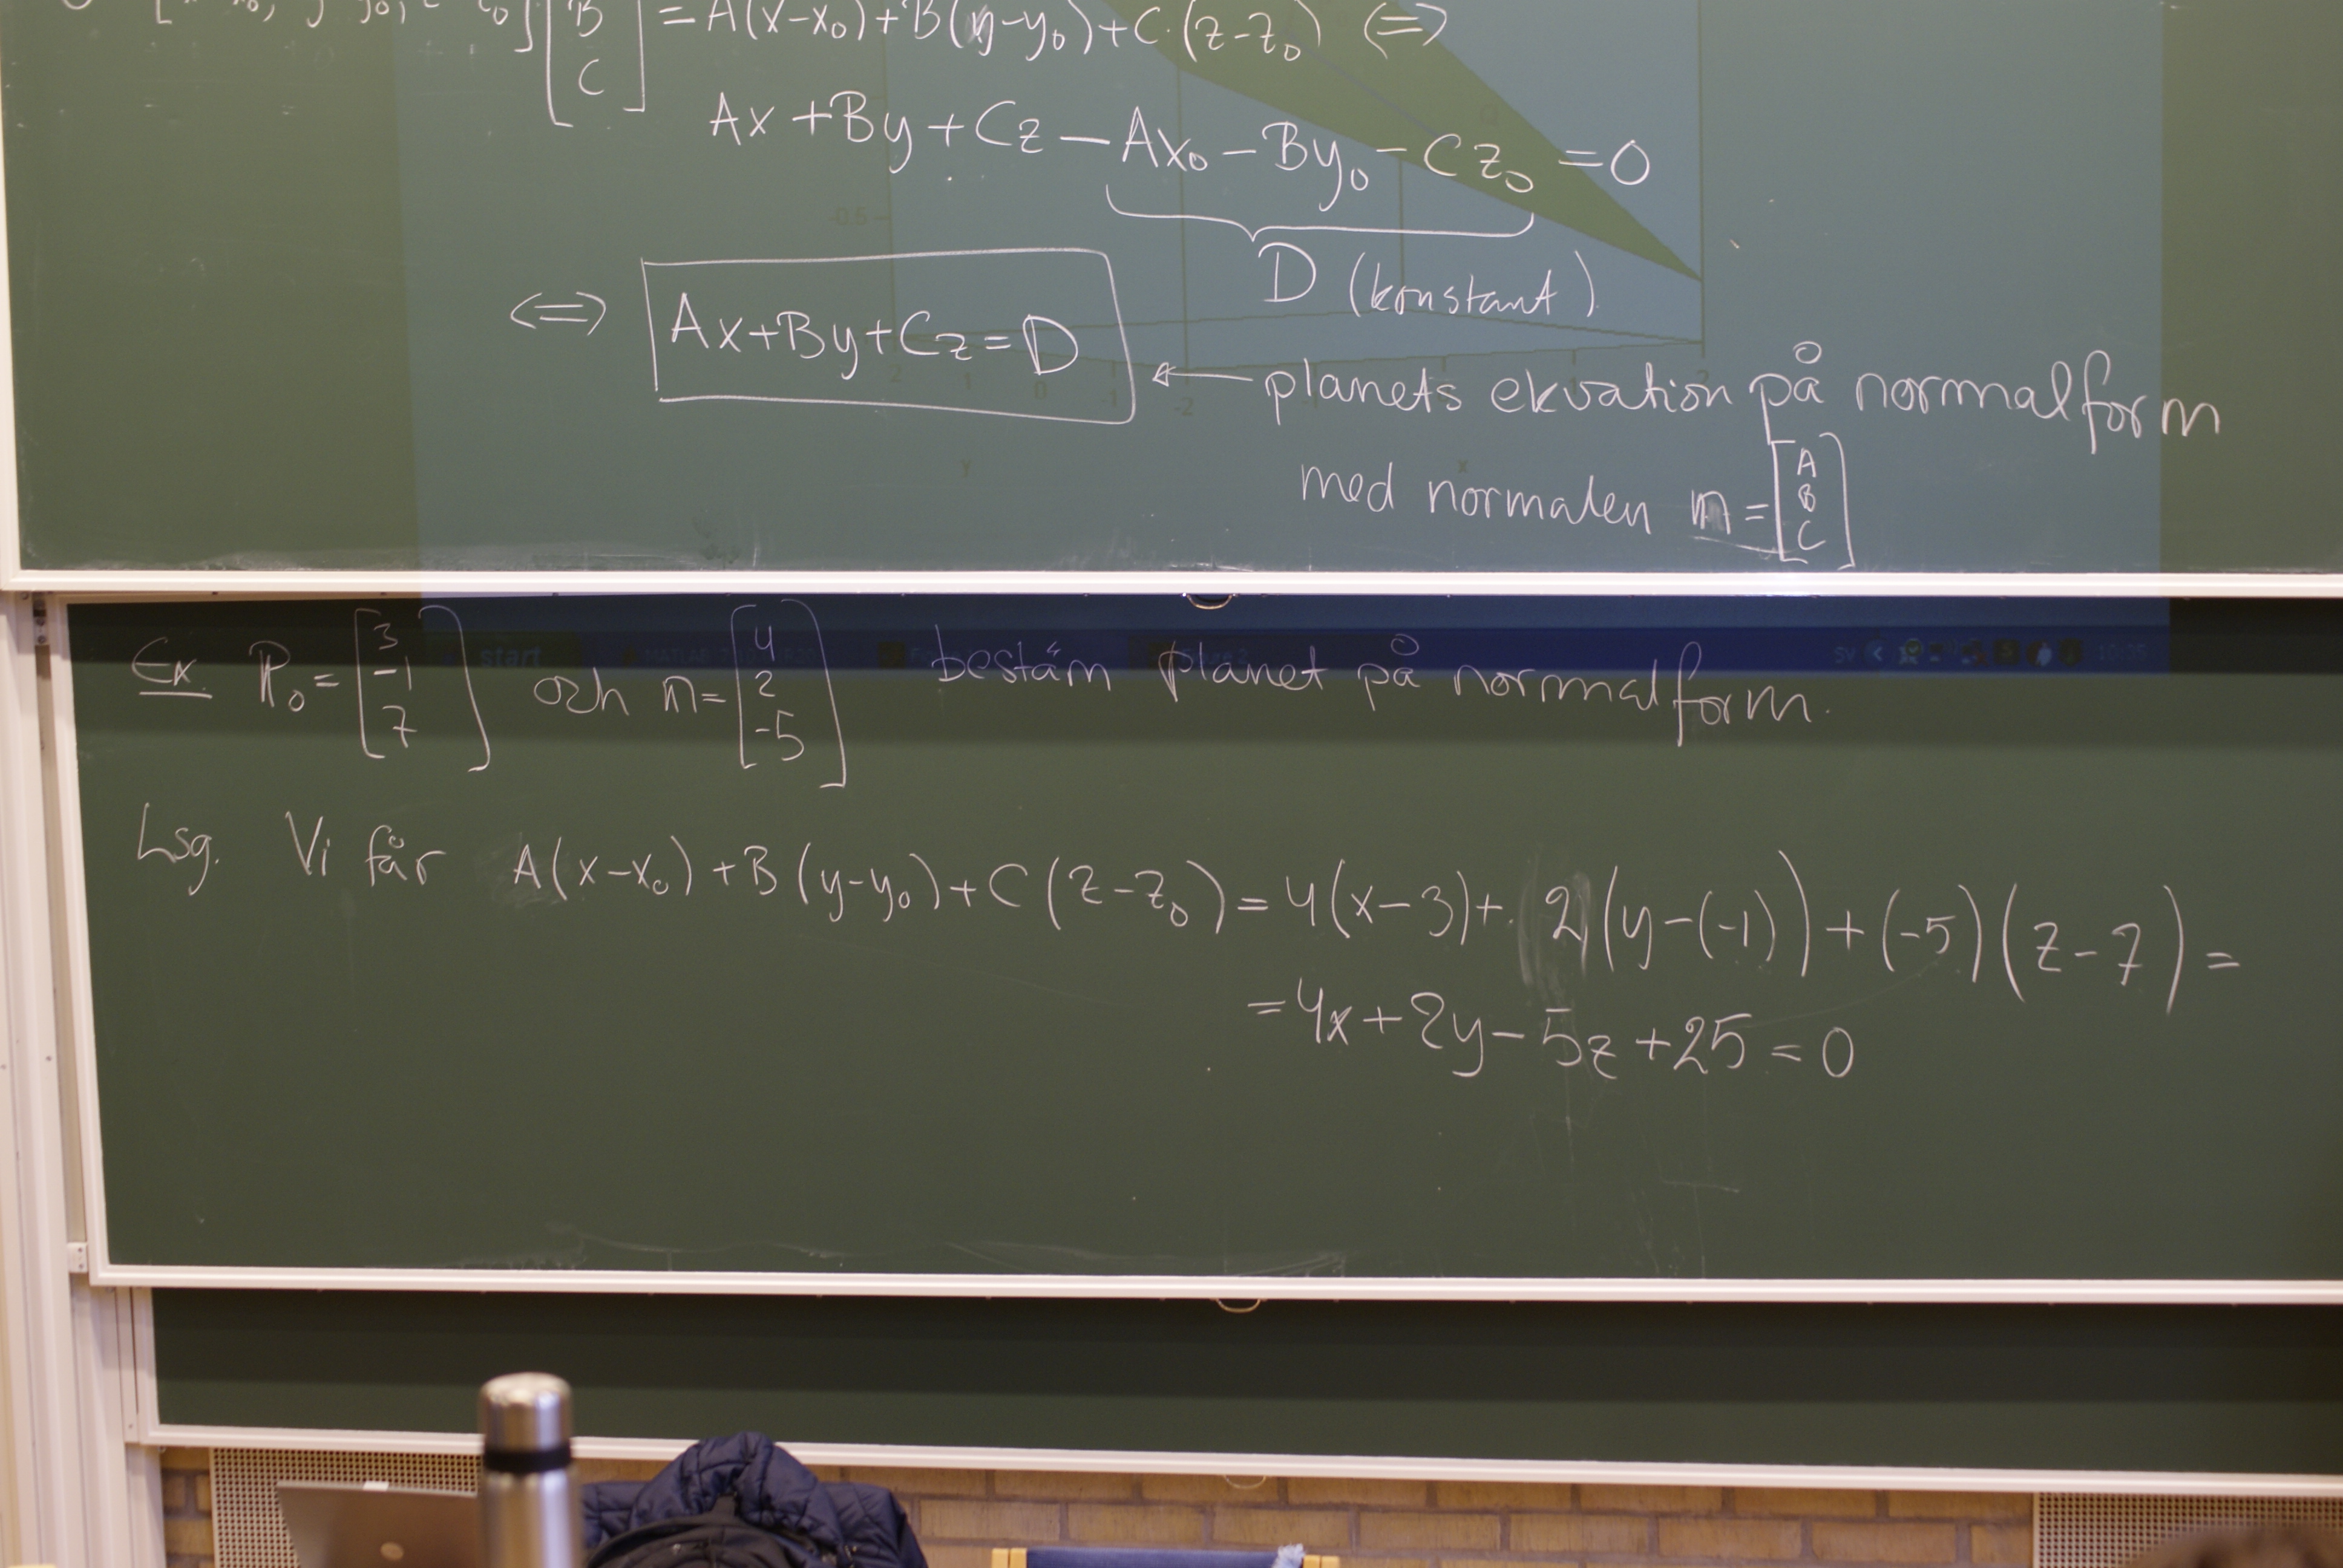 B = A(x-x₀)+B(y-y₀)+C·(z-z₀) <=>
C
Ax+By+Cz-Ax₀-By₀-Cz₀=0
D (konstant).
<=> Ax+By+Cz=D ← planets ekvation på normalform
med normalen n=[A B C]
Ex. P₀=[3 -1 7] och n=[4 2 -5] bestäm planet på normalform.
Lsg. Vi får A(x-x₀)+B(y-y₀)+C(z-z₀)=4(x-3)+2(y-(-1))+(-5)(z-7)=
=4x+2y-5z+25=0
-0.5
2 1 0 -1 -2
Y X
start MATLAB SV